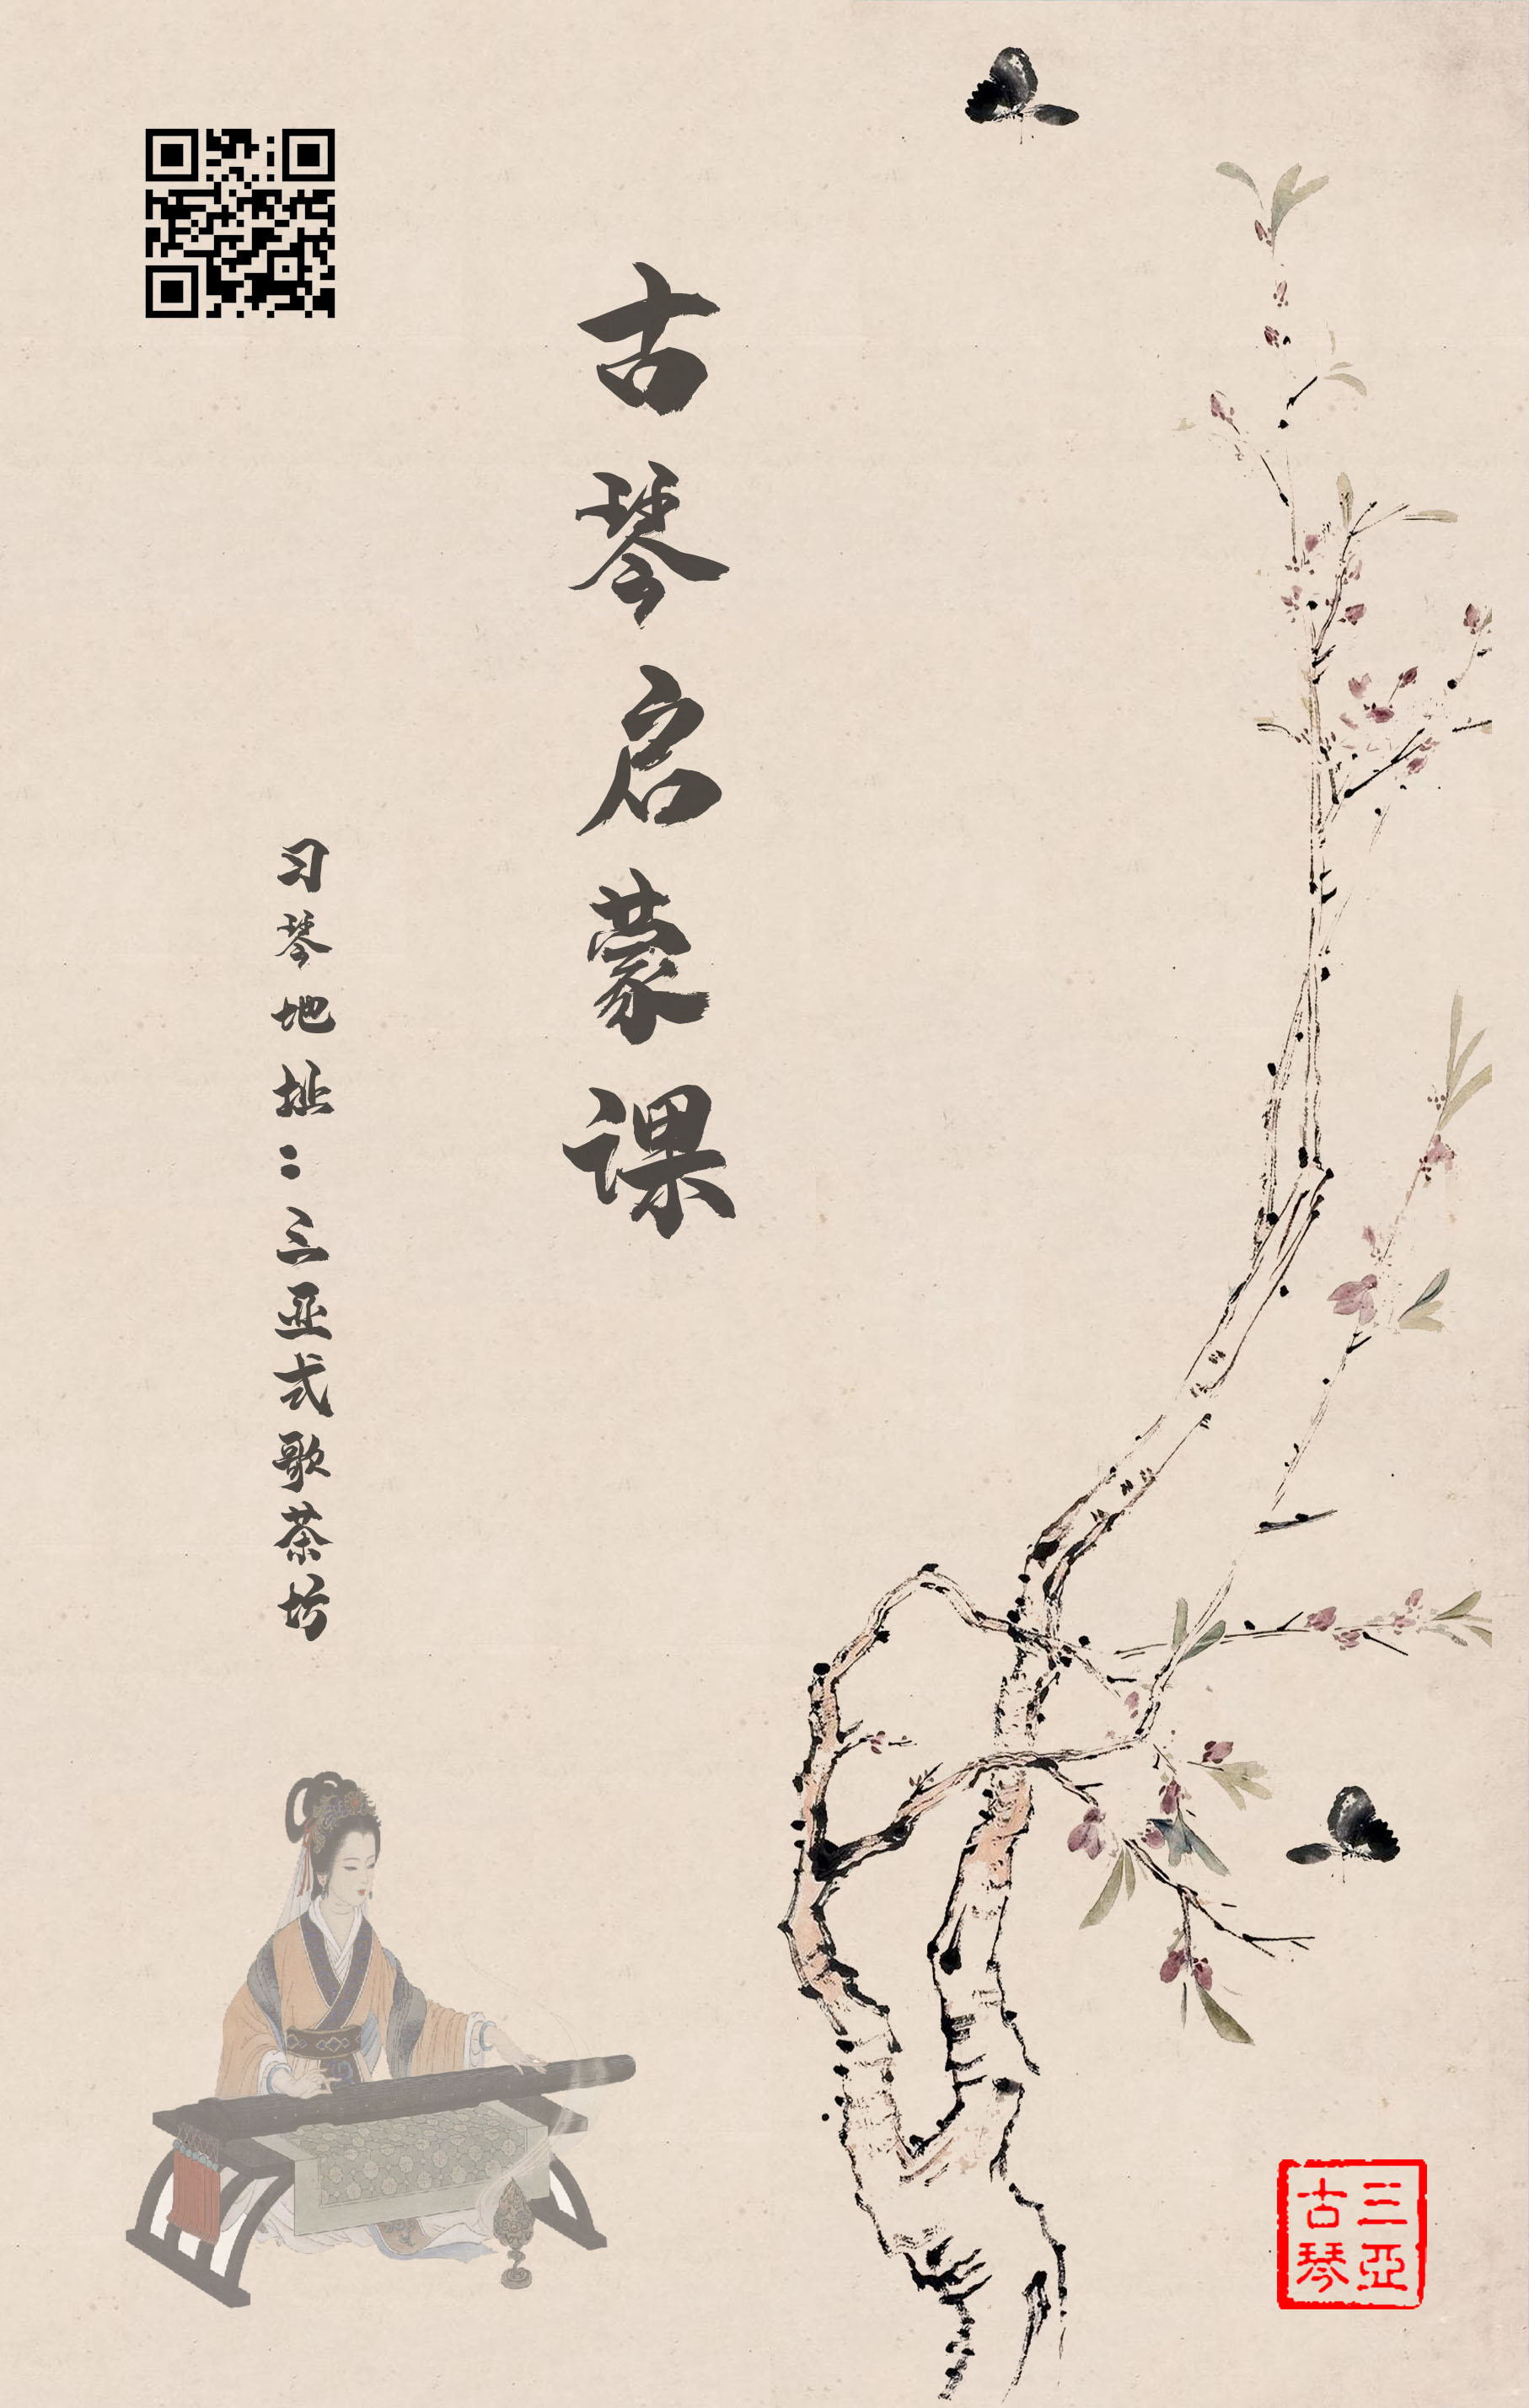 古琴启蒙课
习琴地址：三亚式歌茶坊
三亞
古琴